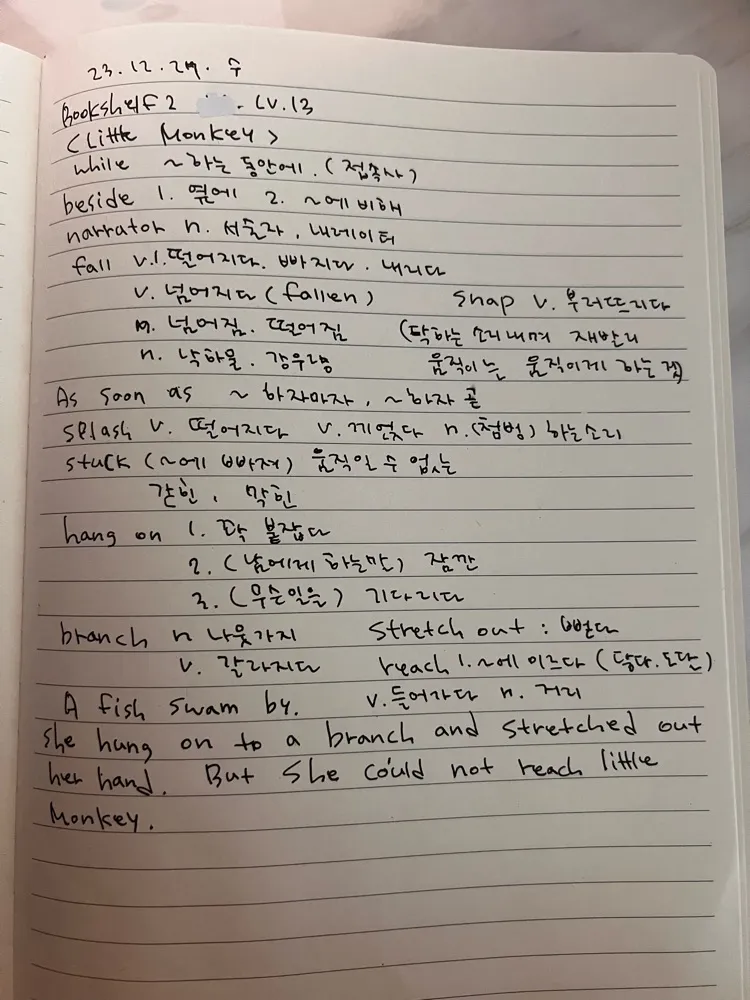 23. 12. 27. 수
Bookshelf 2 . LV.13
<Little Monkey>
while ~하는 동안에. (접속사)
beside 1. 옆에 2. ~에 비해
narrator n. 서술자, 내레이터
fall v.1. 떨어지다. 빠지다. 내리다
v. 넘어지다 (fallen) snap v. 부러뜨리다
n. 넘어짐. 떨어짐 (딱하는 소리내며 재빨리
n. 낙하물. 강우량 움직이는 움직이게 하는 것)
As soon as ~ 하자마자, ~하자 곧
splash v. 떨어지다 v. 끼얹다 n. (첨벙) 하는소리
stuck (~에 빠져) 움직일 수 없는
갇힌, 막힌
hang on 1. 꽉 붙잡다
2. (남에게 하는말) 잠깐
3. (무슨일을) 기다리다
branch n 나뭇가지 stretch out : 뻗다
v. 갈라지다 reach 1. ~에 이르다 (닿다. 도달)
A fish swam by. v. 들어가다 n. 거리
She hung on to a branch and stretched out
her hand. But She could not reach little
Monkey.